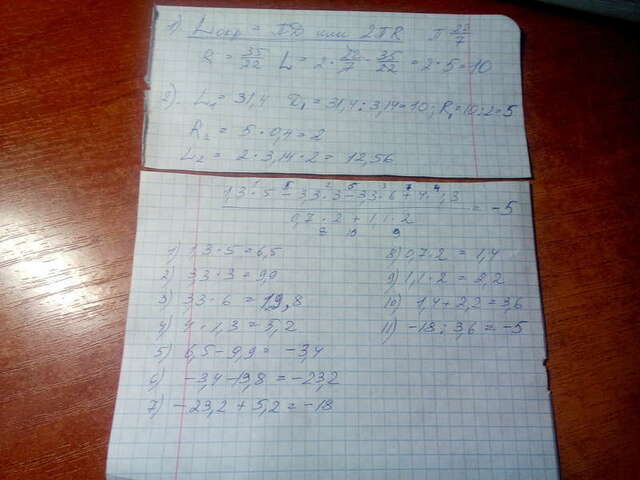 1) Lокр = πD или 2πR π 22/7
R = 35/22 L = 2 · 22/7 · 35/22 = 2 · 5 = 10
2) L₁ = 31,4 D₁ = 31,4 : 3,14 = 10; R₁ = 10 : 2 = 5
R₂ = 5 · 0,4 = 2
L₂ = 2 · 3,14 · 2 = 12,56
1,3 · 5 - 3,3 · 3 - 3,3 · 6 + 4 · 1,3
= -5
0,7 · 2 + 1,1 · 2
1) 1,3 · 5 = 6,5
2) 3,3 · 3 = 9,9
3) 3,3 · 6 = 19,8
4) 4 · 1,3 = 5,2
5) 6,5 - 9,9 = -3,4
6) -3,4 - 19,8 = -23,2
7) -23,2 + 5,2 = -18
8) 0,7 · 2 = 1,4
9) 1,1 · 2 = 2,2
10) 1,4 + 2,2 = 3,6
11) -18 : 3,6 = -5